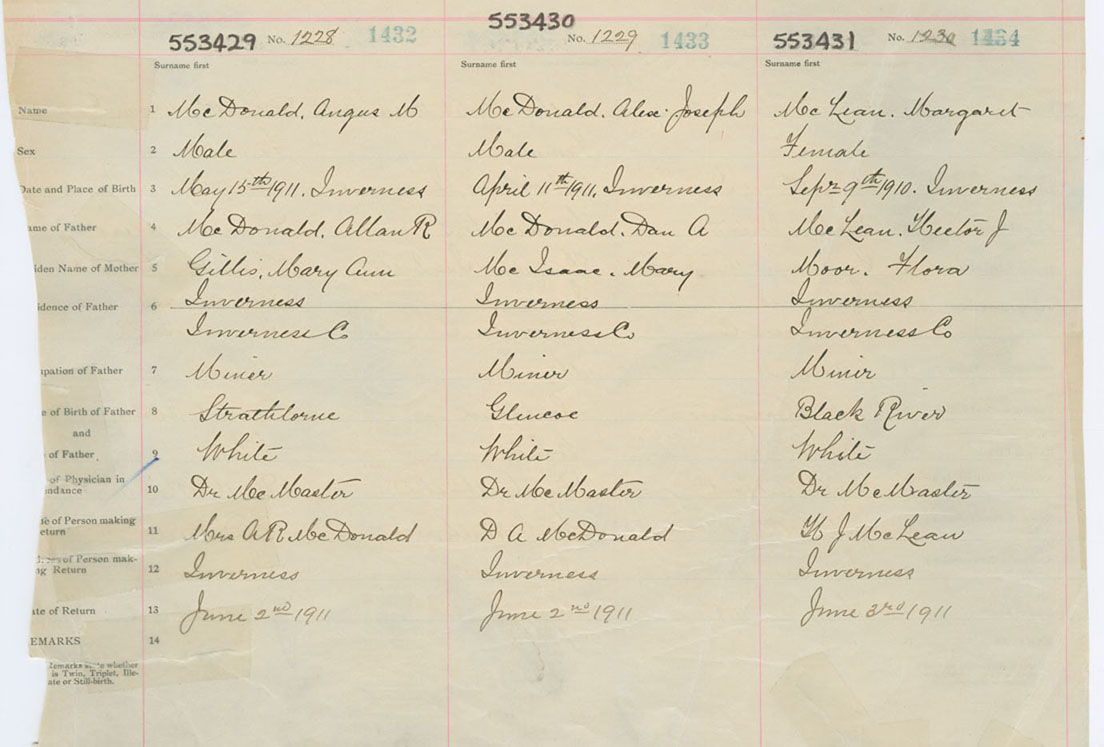 553429 No. 1228 1432 553430 No. 1229 1433 553431 No. 1230 1434
Surname first Surname first Surname first
Name 1 McDonald. Angus M McDonald. Alex. Joseph McLean. Margaret
Sex 2 Male Male Female
Date and Place of Birth 3 May 15th 1911. Inverness April 11th 1911. Inverness Sept 9th 1910. Inverness
ame of Father 4 McDonald. Allan R McDonald. Dan A McLean. Hector J
iden Name of Mother 5 Gillis. Mary Ann McIsaac. Mary Moor. Flora
idence of Father 6 Inverness Inverness Inverness
Inverness Co Inverness Co Inverness Co
upation of Father 7 Miner Miner Miner
e of Birth of Father 8 Strathlorne Glencoe Black River
and
of Father 9 White White White
of Physician in
ndance 10 Dr McMaster Dr McMaster Dr McMaster
e of Person making
eturn 11 Mrs A R McDonald D A McDonald H J McLean
of Person mak-
ng Return 12 Inverness Inverness Inverness
ate of Return 13 June 2nd 1911 June 2nd 1911 June 3rd 1911
EMARKS 14
Remarks state whether
is Twin, Triplet, Ille-
ate or Still-birth.